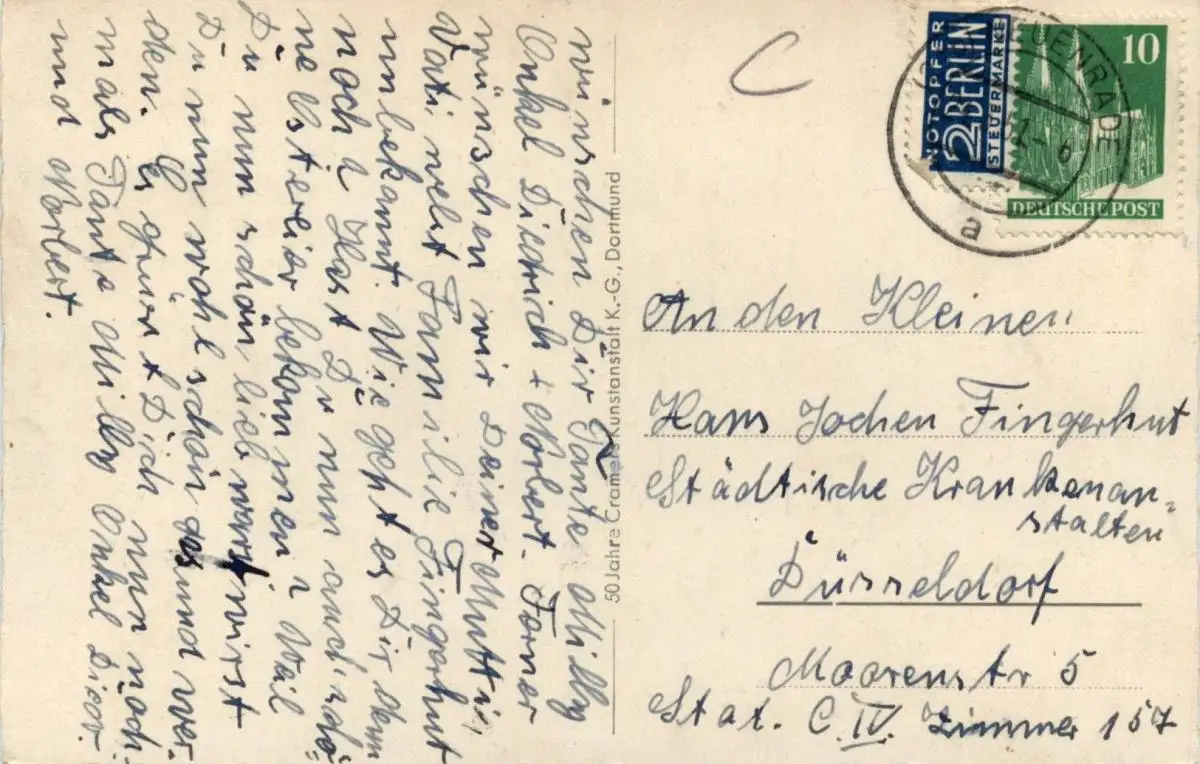 wünschen Dir Tante Milly
Onkel Diedrich + Norbert. Ferner
wünschen wir Deiner Mutti,
Vati nebst Familie Fingerhut
unbekannt. Wie geht es Dir denn
noch? Hast Du nun auch schö-
ne Ostereier bekommen? Weil
Du nun schön lieb warst wirst
Du nun wohl schon gesund wer-
den. Es grüsst Dich nun noch-
mals Tante Milly Onkel Diedr.
und Norbert.
50 Jahre Cramers Kunstanstalt K.-G., Dortmund
C
NOTOPFER
2 BERLIN
STEUERMARKE
10
DEUTSCHE POST
a
An den Kleinen
Hans Jochen Fingerhut
Städtische Krankenan-
stalten
Düsseldorf
Moorenstr 5
Stat. C. IV. Zimmer 157